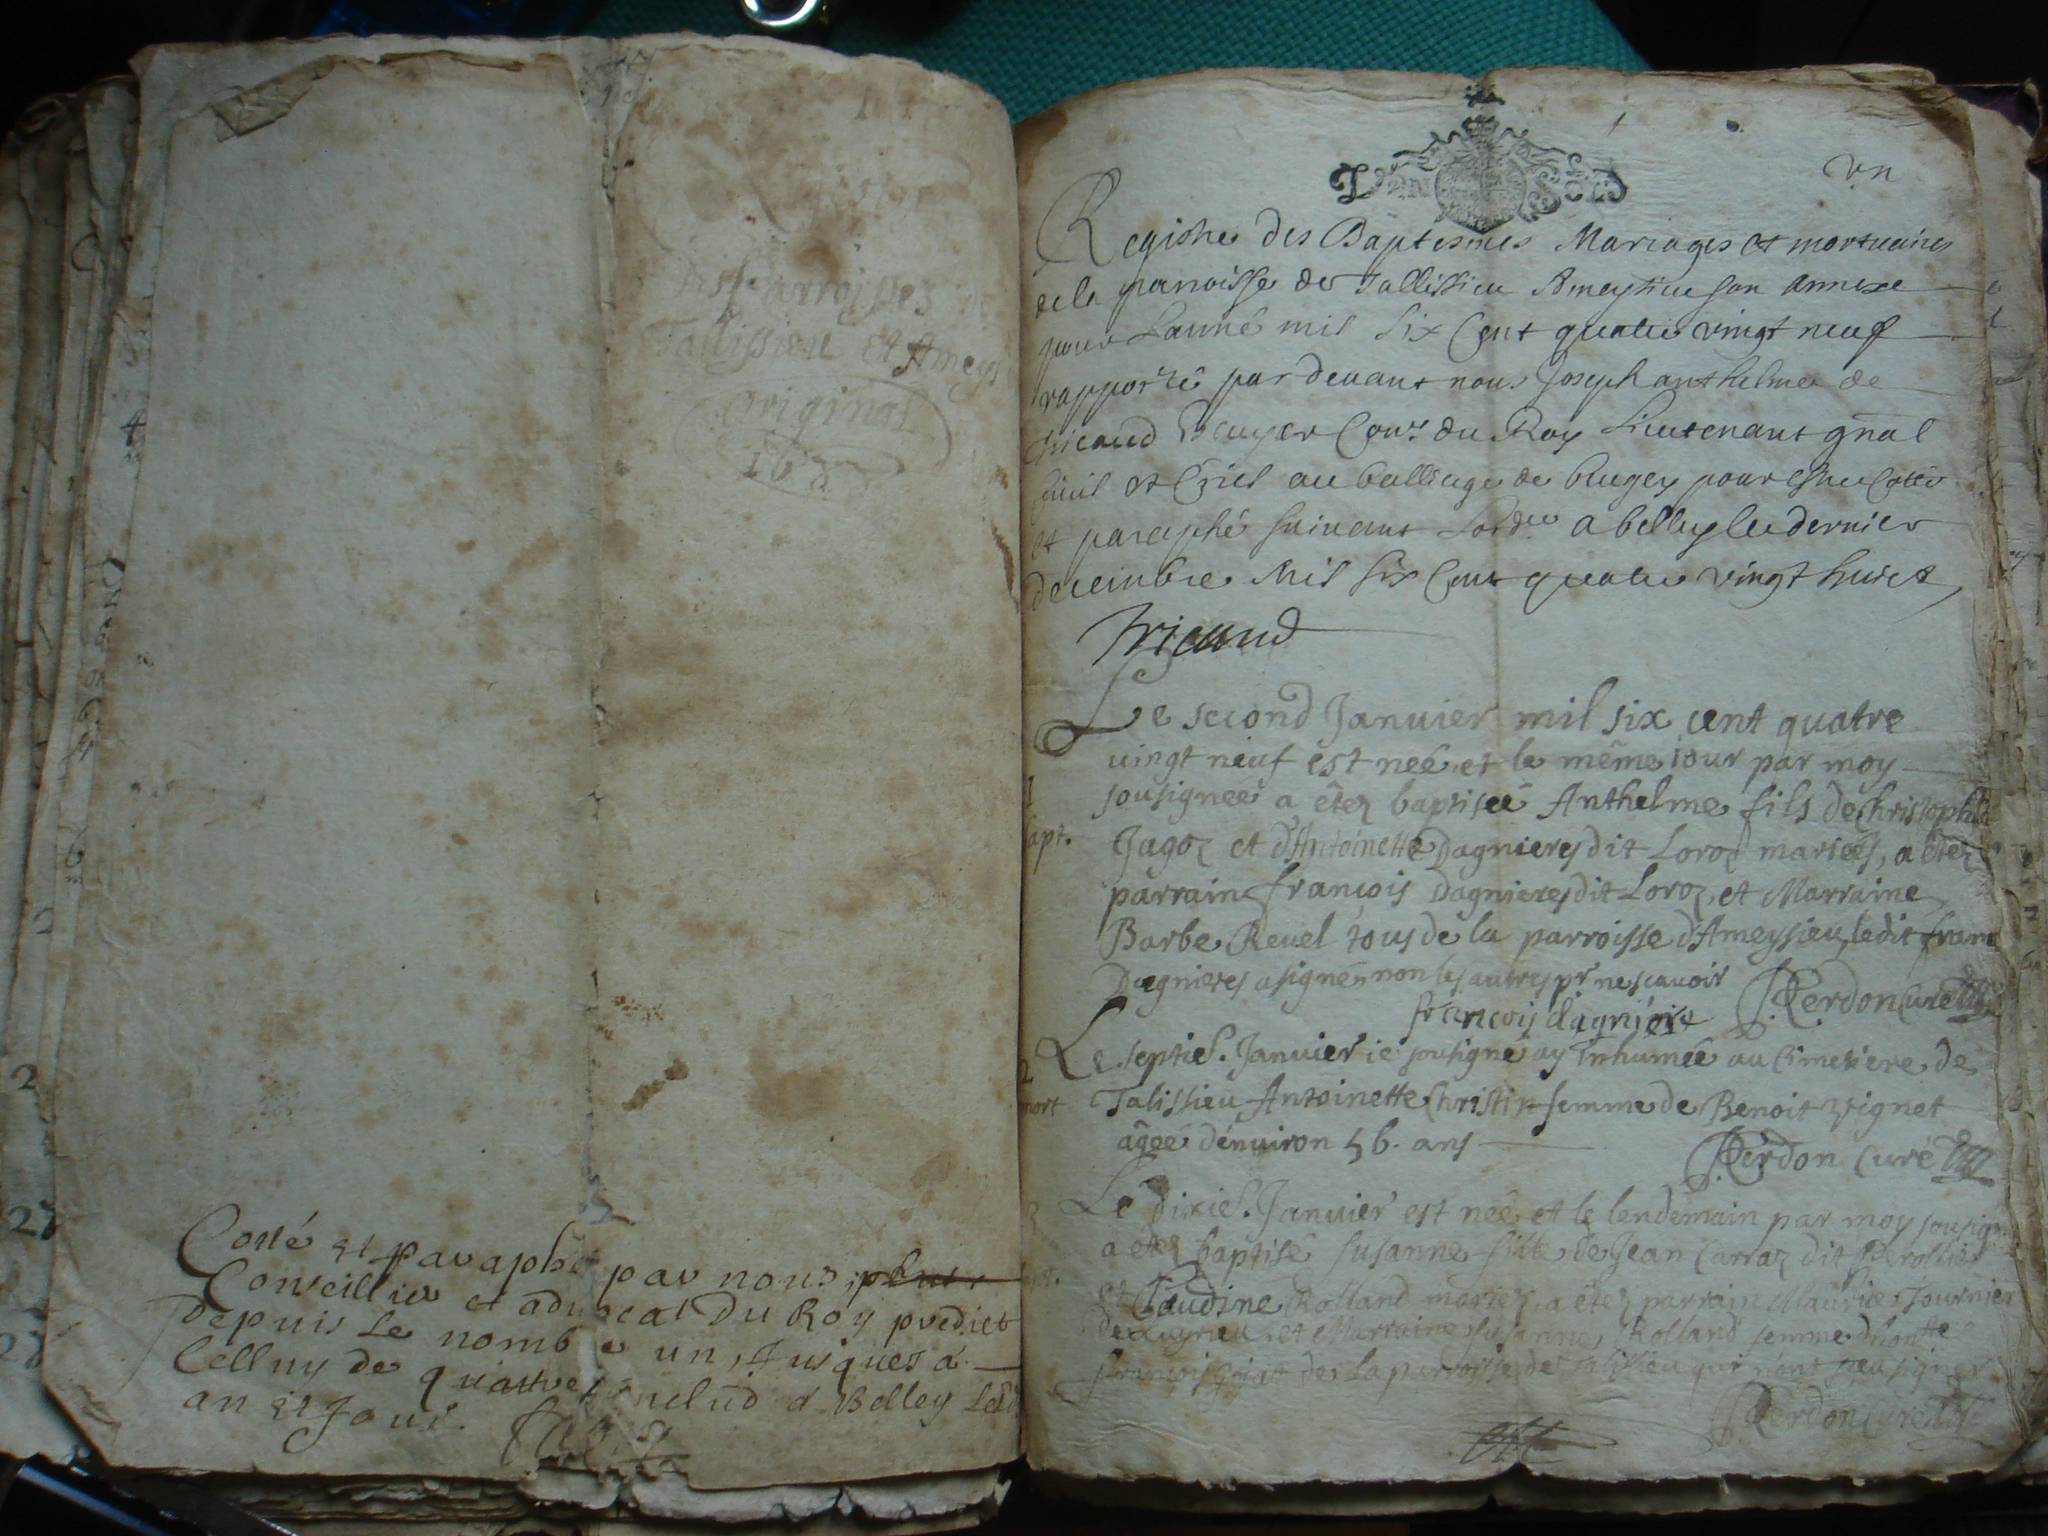 des parroisses de
Tallissieu et Ameys
Original
Cotté et paraphé par nous
Conseillier et advocat du Roy predict
depuis le nombre un, Jusques à
Celluy de quattre includ a Belley Les
an et Jour.
un
Registre des Baptesmes Mariages et mortuaires
de la parroisse de Tallissieu Ameysieu son annexe
pour Lanné mil Six Cent quatre vingt neuf
rapporté par devant nous Joseph anthelme de
tricaud Escuyer Conr. du Roy Lieutenant gnal
Civil et Criel au balliage de bugey pour estre Cotté
et paraphé suivant Lordce a belley le dernier
decembre Mil Six Cent quatre vingt huict
Tricaud
Le second Janvier mil six cent quatre
vingt neuf est neé et le même iour par moy
1
sousigneé a êtez baptiseé Anthelme fils de Christophle
apt. Jagoz et d'Antoinette Dagnieres dit Loroz marieés, a êtez
parrain françois Dagnieres dit Loroz, et Marraine
Barbe Revel tous de la parroisse d'Ameysieu, ledit franc
Dagnieres a signé, non les autres pr ne scavoir
françois dagniere Perdon Curé
Le septie. Janvier ie sousigné ay inhumeé au Cimetiere de
2
mort Talissieu Antoinette Christin femme de Benoit Vignet
âgeé d'environ 56. ans
Perdon Curé
3
Le dixie. Janvier est neé et le lendemain par moy sousigné
a etez baptisé Susanne fille de Jean Carraz dit Perollier
et Claudine Rolland mariez, a êtez parrain Maurice Tournier
et Marraine Susanne Rolland femme d'honste
françois de la parroisse de Talissieu qui n'ont peu signer
Perdon Curé